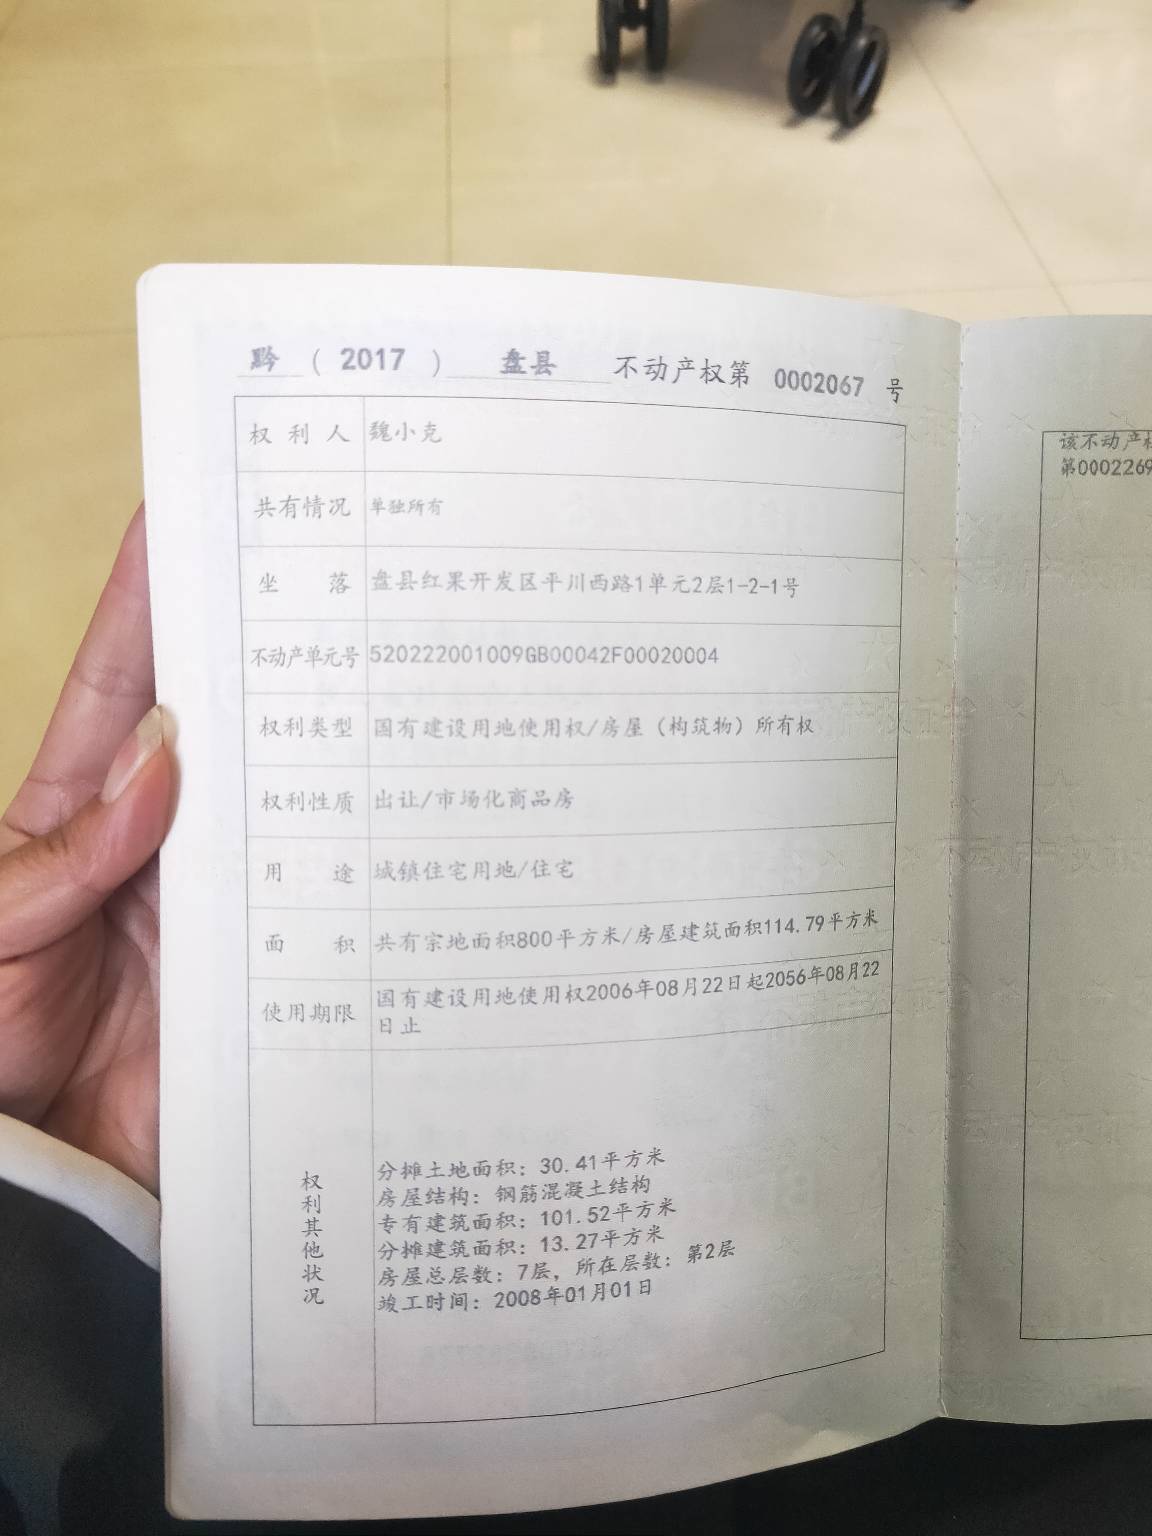 黔（2017）盘县不动产权第 0002067 号
权利人 魏小克
共有情况 单独所有
坐落 盘县红果开发区平川西路1单元2层1-2-1号
不动产单元号 520222001009GB00042F00020004
权利类型 国有建设用地使用权/房屋（构筑物）所有权
权利性质 出让/市场化商品房
用途 城镇住宅用地/住宅
面积 共有宗地面积800平方米/房屋建筑面积114.79平方米
使用期限 国有建设用地使用权2006年08月22日起2056年08月22
日止
权利其他状况
分摊土地面积：30.41平方米
房屋结构：钢筋混凝土结构
专有建筑面积：101.52平方米
分摊建筑面积：13.27平方米
房屋总层数：7层，所在层数：第2层
竣工时间：2008年01月01日
该不动产权
第0002269